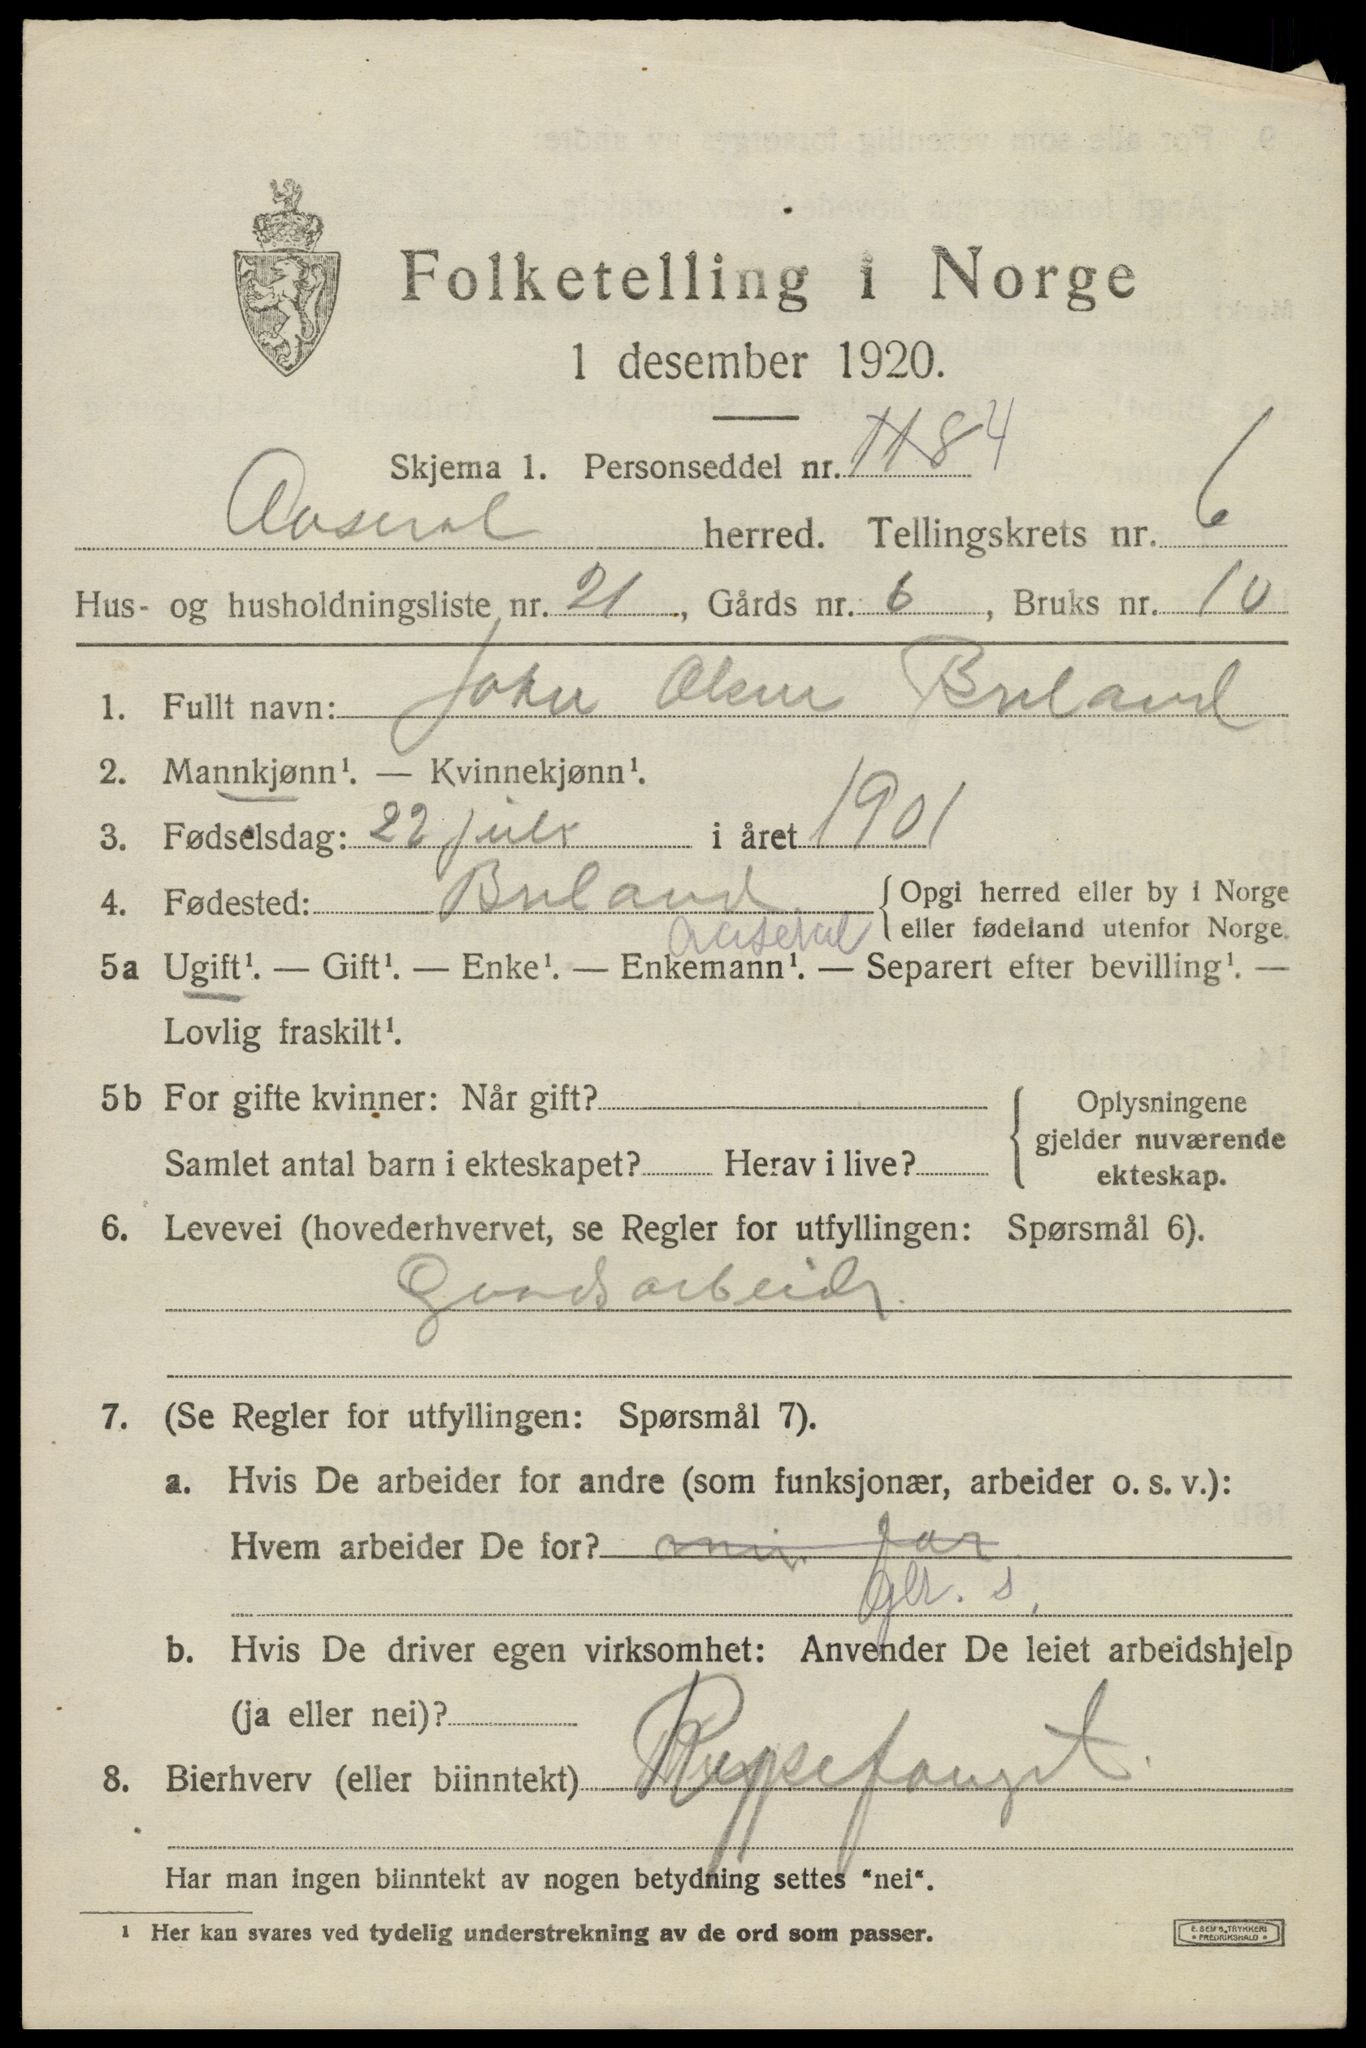 Folketelling i Norge
1 desember 1920.
Skjema 1. Personseddel nr. 1184
Aaseral herred. Tellingskrets nr. 6
Hus- og husholdningsliste nr. 21, Gårds nr. 6, Bruks nr. 10
1. Fullt navn: John Olsen Breland
2. Mannkjønn¹. — Kvinnekjønn¹.
3. Fødselsdag: 22 juli i året 1901
4. Fødested: Breland { Opgi herred eller by i Norge
Aaseral eller fødeland utenfor Norge.
5a Ugift¹. — Gift¹. — Enke¹. — Enkemann¹. — Separert efter bevilling¹. —
Lovlig fraskilt¹.
5b For gifte kvinner: Når gift? { Oplysningene
gjelder nuværende
Samlet antal barn i ekteskapet? Herav i live? ekteskap.
6. Levevei (hovederhvervet, se Regler for utfyllingen: Spørsmål 6).
Gaardsarbeider
7. (Se Regler for utfyllingen: Spørsmål 7).
a. Hvis De arbeider for andre (som funksjonær, arbeider o. s. v.):
Hvem arbeider De for? min far
b. Hvis De driver egen virksomhet: Anvender De leiet arbeidshjelp
(ja eller nei)?
8. Bierhverv (eller biinntekt) Rypefangst.
Har man ingen biinntekt av nogen betydning settes "nei".
¹ Her kan svares ved tydelig understrekning av de ord som passer.
E. SEM'S TRYKKERI
* FREDRIKSHALD *